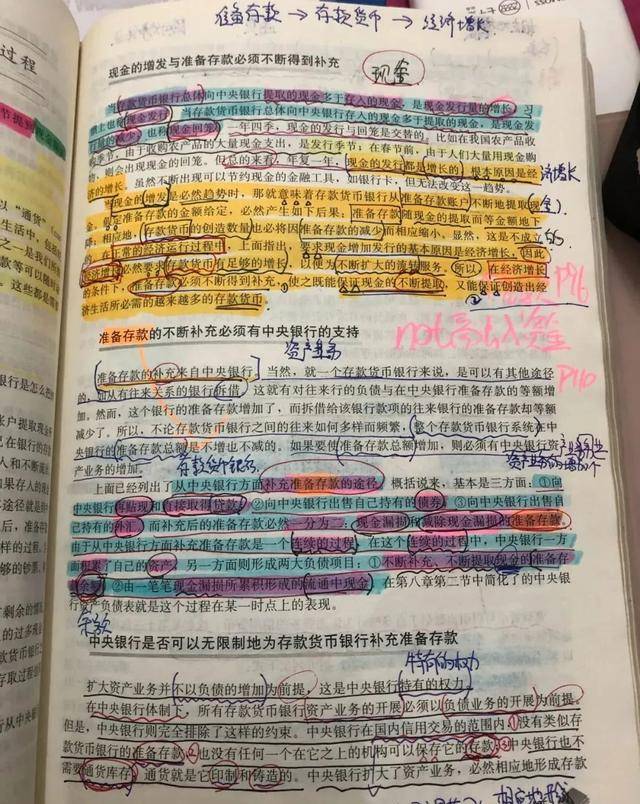 准备存款 → 存款货币 → 经济增长
过程
现金的增发与准备存款必须不断得到补充
现金
当存款货币银行总体向中央银行提取的现金多于存入的现金，是现金发行量的增长，习
惯上也称现金发行；当存款货币银行总体向中央银行存入的现金多于提取的现金，是现金发
行量的减少，也称现金回笼。一年四季，现金的发行与回笼是交替的。比如在我国农产品收
购季节，由于收购农产品的大量现金支出，是发行季节；在春节前，由于人们大量用现金购
物，则会出现现金的回笼。但总的来看，年复一年，现金的发行都是增长的，根本原因是经
济增长
济的增长。虽然不断出现可以节约现金的金融工具，如银行卡，但无法改变这一趋势。
当现金的增发是必然趋势时，那就意味着存款货币银行从准备存款账户不断地提取现
金，假定准备存款的金额给定，必然产生如下后果：准备存款随现金的提取而等金额地下
降；相应地，存款货币的创造数量也必将因准备存款的减少而相应缩小。显然，这是不成立
的
的，在正常的经济运行过程中。上面指出，要求现金增加发行的基本原因是经济增长，因此
经济增长必然要求存款货币有足够的增长，以便为不断扩大的流转服务。所以，在经济增长
的条件下，准备存款必须不断得到补充，使之既能保证现金的不断提取，又能保证创造出经
济生活所必需的越来越多的存款货币。
P96
准备存款的不断补充必须有中央银行的支持
资产业务
P110
准备存款的补充来自中央银行。当然，就一个存款货币银行来说，是可以有其他途径
的，他从有往来关系的银行拆借。这就有对往来行的负债与在中央银行准备存款的等额增
加。然而，这个银行的准备存款增加了，而拆借给该银行款项的往来银行的准备存款却等额
减少了。所以，不论存款货币银行之间的往来如何多样而频繁，整个存款货币银行系统在中
央银行的准备存款总额是不增也不减的。如果要使准备存款总额增加，则必须有中央银行资
产业务的增加。
上面已经列出了从中央银行方面补充准备存款的途径。概括说来，基本是三方面：①向
中央银行再贴现和直接取得贷款；②向中央银行出售自己持有的债券；③向中央银行出售自
己持有的外汇。而补充后的准备存款必然一分为二：现金漏损和减除现金漏损的准备存款。
由于从中央银行方面补充准备存款是一个连续的过程，在这个连续的过程中，中央银行一方
面积累了自己的资产，另一方面则形成两大负债项目：①不断补充、不断提取现金的准备存款
余额；②由一笔笔现金漏损所累积形成的流通中现金。在第八章第二节中简化了的中央银
行资产负债表就是这个过程在某一时点上的表现。
余额
中央银行是否可以无限制地为存款货币银行补充准备存款
特有的权力
扩大资产业务并不以负债的增加为前提，这是中央银行特有的权力。
在中央银行体制下，所有存款货币银行资产业务的开展必须以负债业务的开展为前提。
但是，中央银行则完全排除了这样的约束。中央银行在国内信用交易的范围内，没有类似存
款货币银行的准备存款，也没有任何一个在它之上的机构可以保存它的存款；中央银行也不
需要通货库存，通货就是它印制和铸造的。中央银行扩大了资产业务，必然相应地形成存款